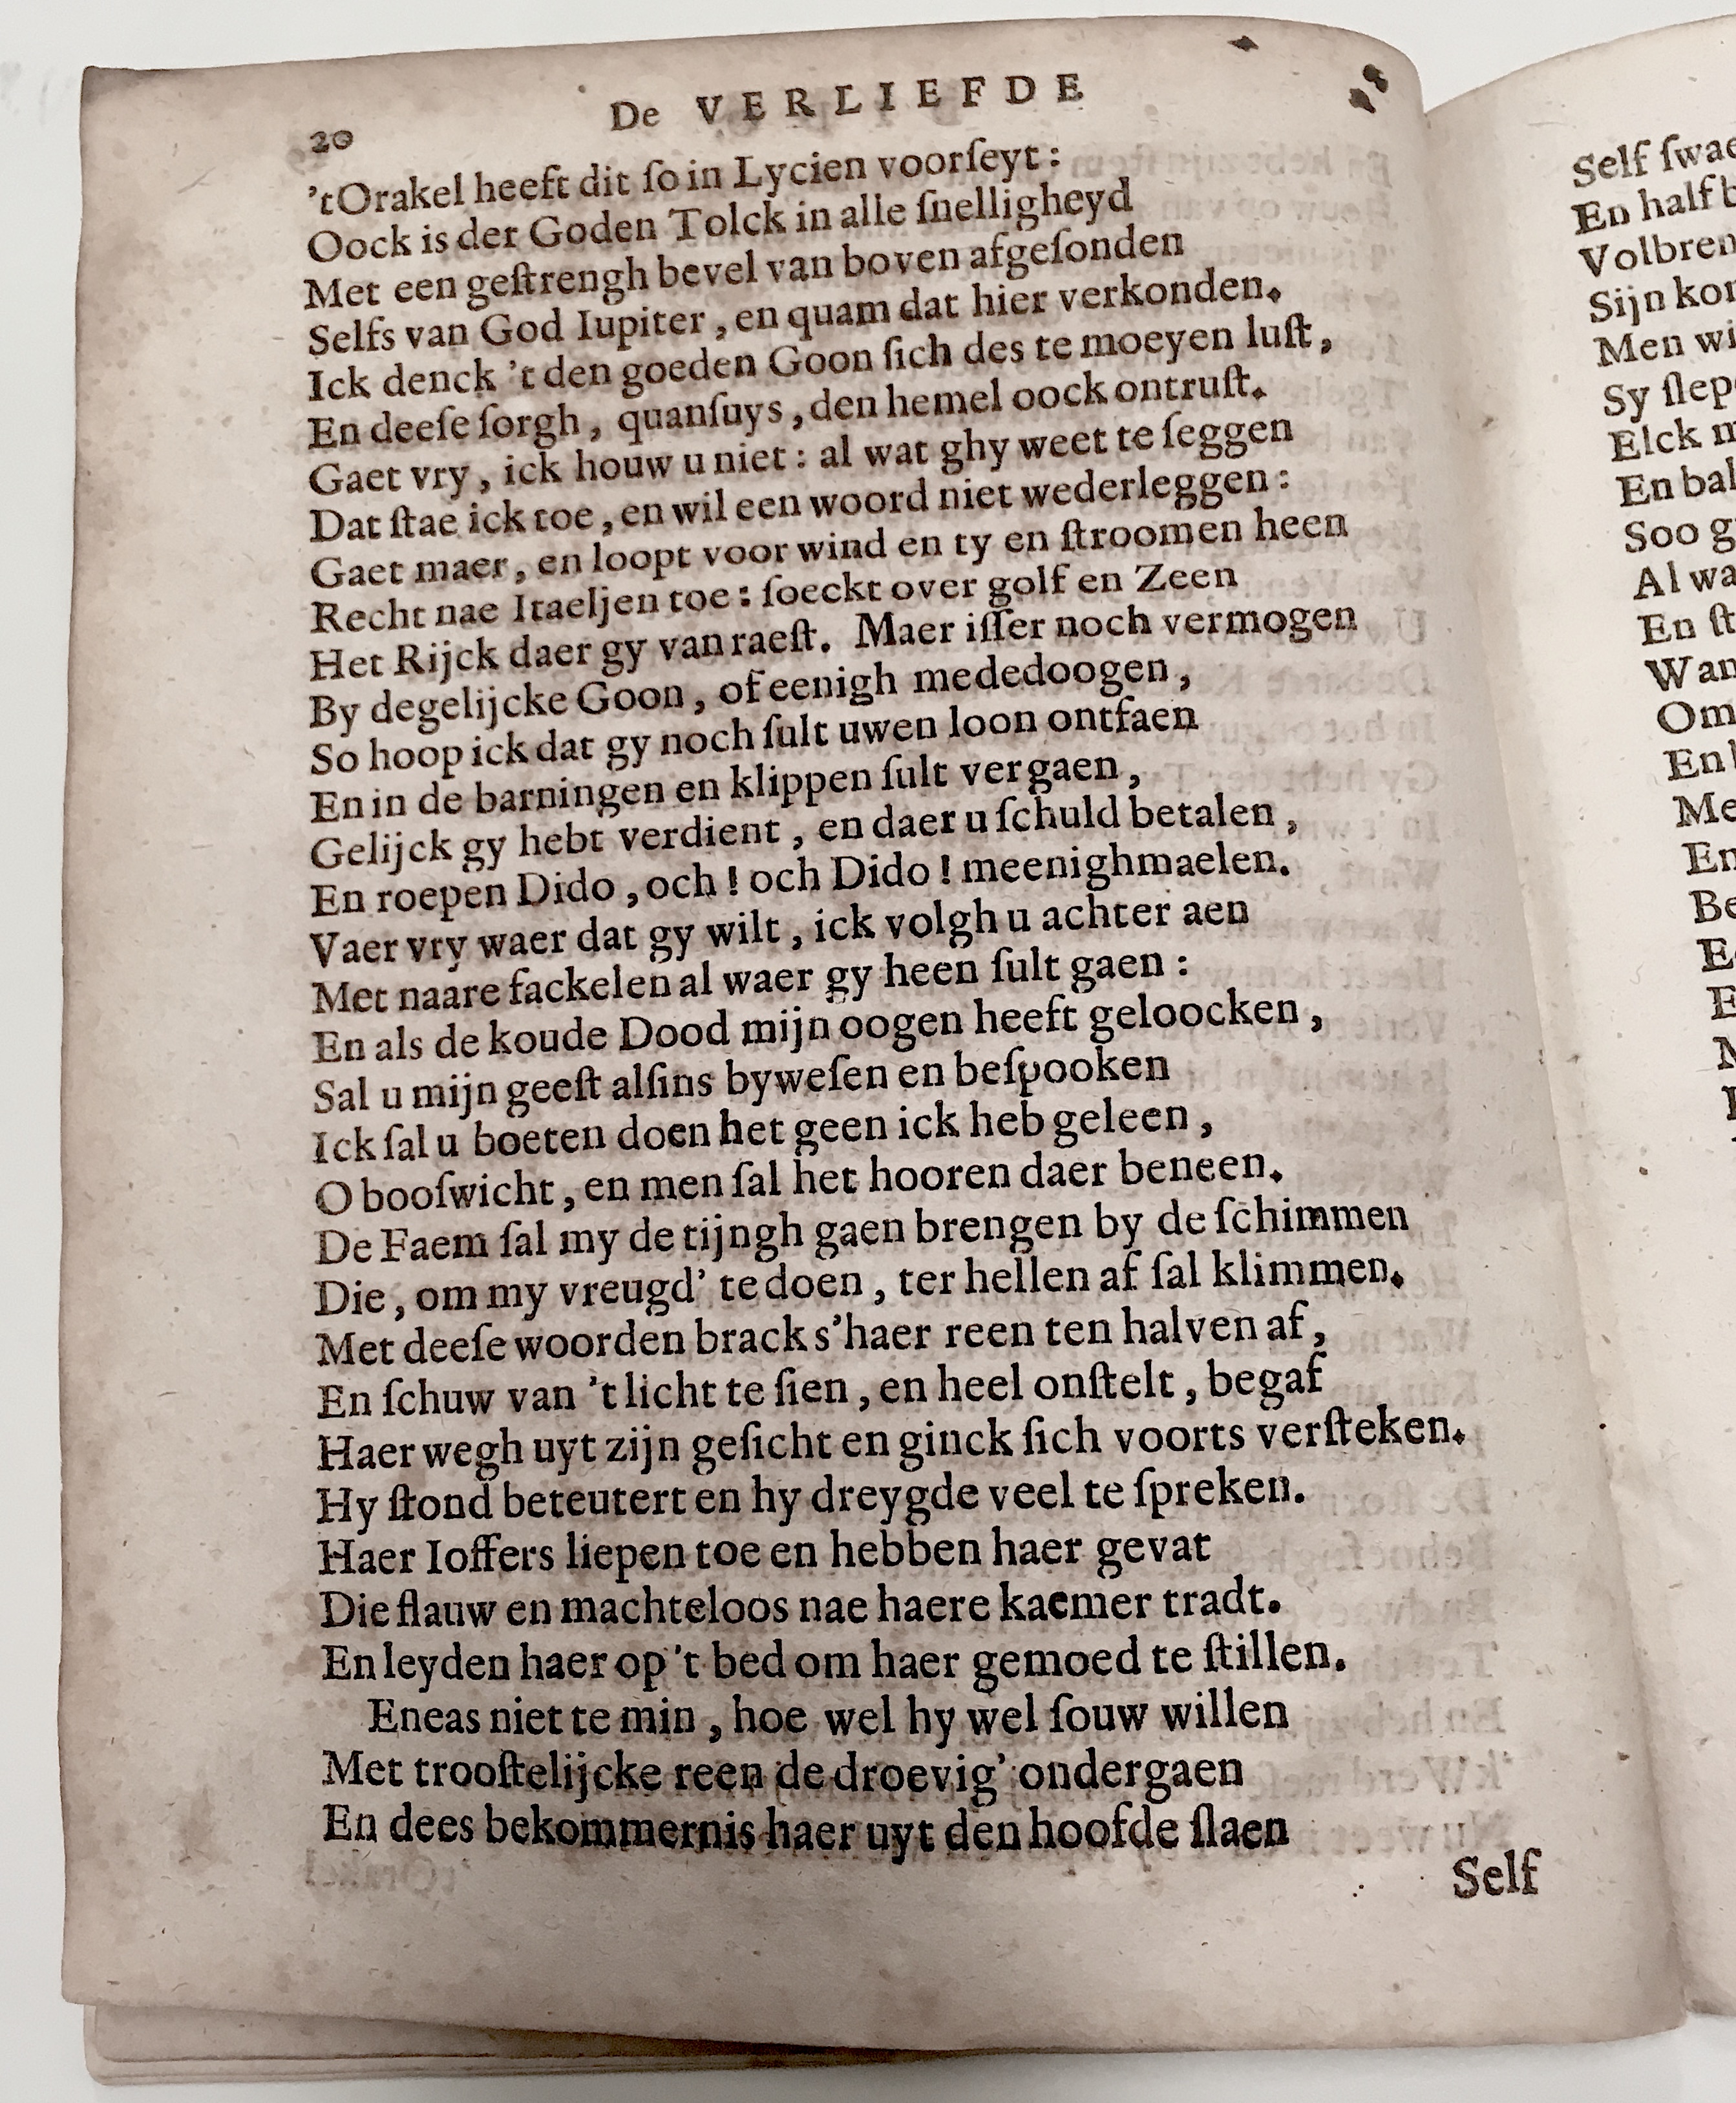 De VERLIEFDE
20
'tOrakel heeft dit ſo in Lycien voorſeyt :
Oock is der Goden Tolck in alle ſnelligheyd
Met een geſtrengh bevel van boven afgeſonden
Selfs van God Iupiter , en quam dat hier verkonden.
Ick denck 't den goeden Goon ſich des te moeyen luſt ,
En deeſe ſorgh , quanſuys , den hemel oock ontruſt.
Gaet vry , ick houw u niet : al wat ghy weet te ſeggen
Dat ſtae ick toe , en wil een woord niet wederleggen :
Gaet maer , en loopt voor wind en ty en ſtroomen heen
Recht nae Itaeljen toe : ſoeckt over golf en Zeen
Het Rijck daer gy van raeſt. Maer iſſer noch vermogen
By degelijcke Goon , of eenigh mededoogen ,
So hoop ick dat gy noch ſult uwen loon ontfaen
En in de barningen en klippen ſult vergaen ,
Gelijck gy hebt verdient , en daer u ſchuld betalen ,
En roepen Dido , och ! och Dido ! meenighmaelen.
Vaer vry waer dat gy wilt , ick volgh u achter aen
Met naare fackelen al waer gy heen ſult gaen :
En als de koude Dood mijn oogen heeft geloocken ,
Sal u mijn geeſt alſins byweſen en beſpooken
Ick ſal u boeten doen het geen ick heb geleen ,
O booſwicht , en men ſal het hooren daer beneen.
De Faem ſal my de tijngh gaen brengen by de ſchimmen
Die , om my vreugd' te doen , ter hellen af ſal klimmen.
Met deeſe woorden brack s'haer reen ten halven af ,
En ſchuw van 't licht te ſien , en heel onſtelt , begaf
Haer wegh uyt zijn geſicht en ginck ſich voorts verſteken.
Hy ſtond beteutert en hy dreygde veel te ſpreken.
Haer Ioffers liepen toe en hebben haer gevat
Die flauw en machteloos nae haere kaemer tradt.
En leyden haer op 't bed om haer gemoed te ſtillen.
Eneas niet te min , hoe wel hy wel ſouw willen
Met trooſtelijcke reen de droevig' ondergaen
En dees bekommernis haer uyt den hoofde ſlaen
Self
Self ſwae
En half b
Volbren
Sijn kor
Men wi
Sy ſlep
Elck m
En bal
Soo g
Al wa
En ſt
Wan
Om
En
Me
En
Be